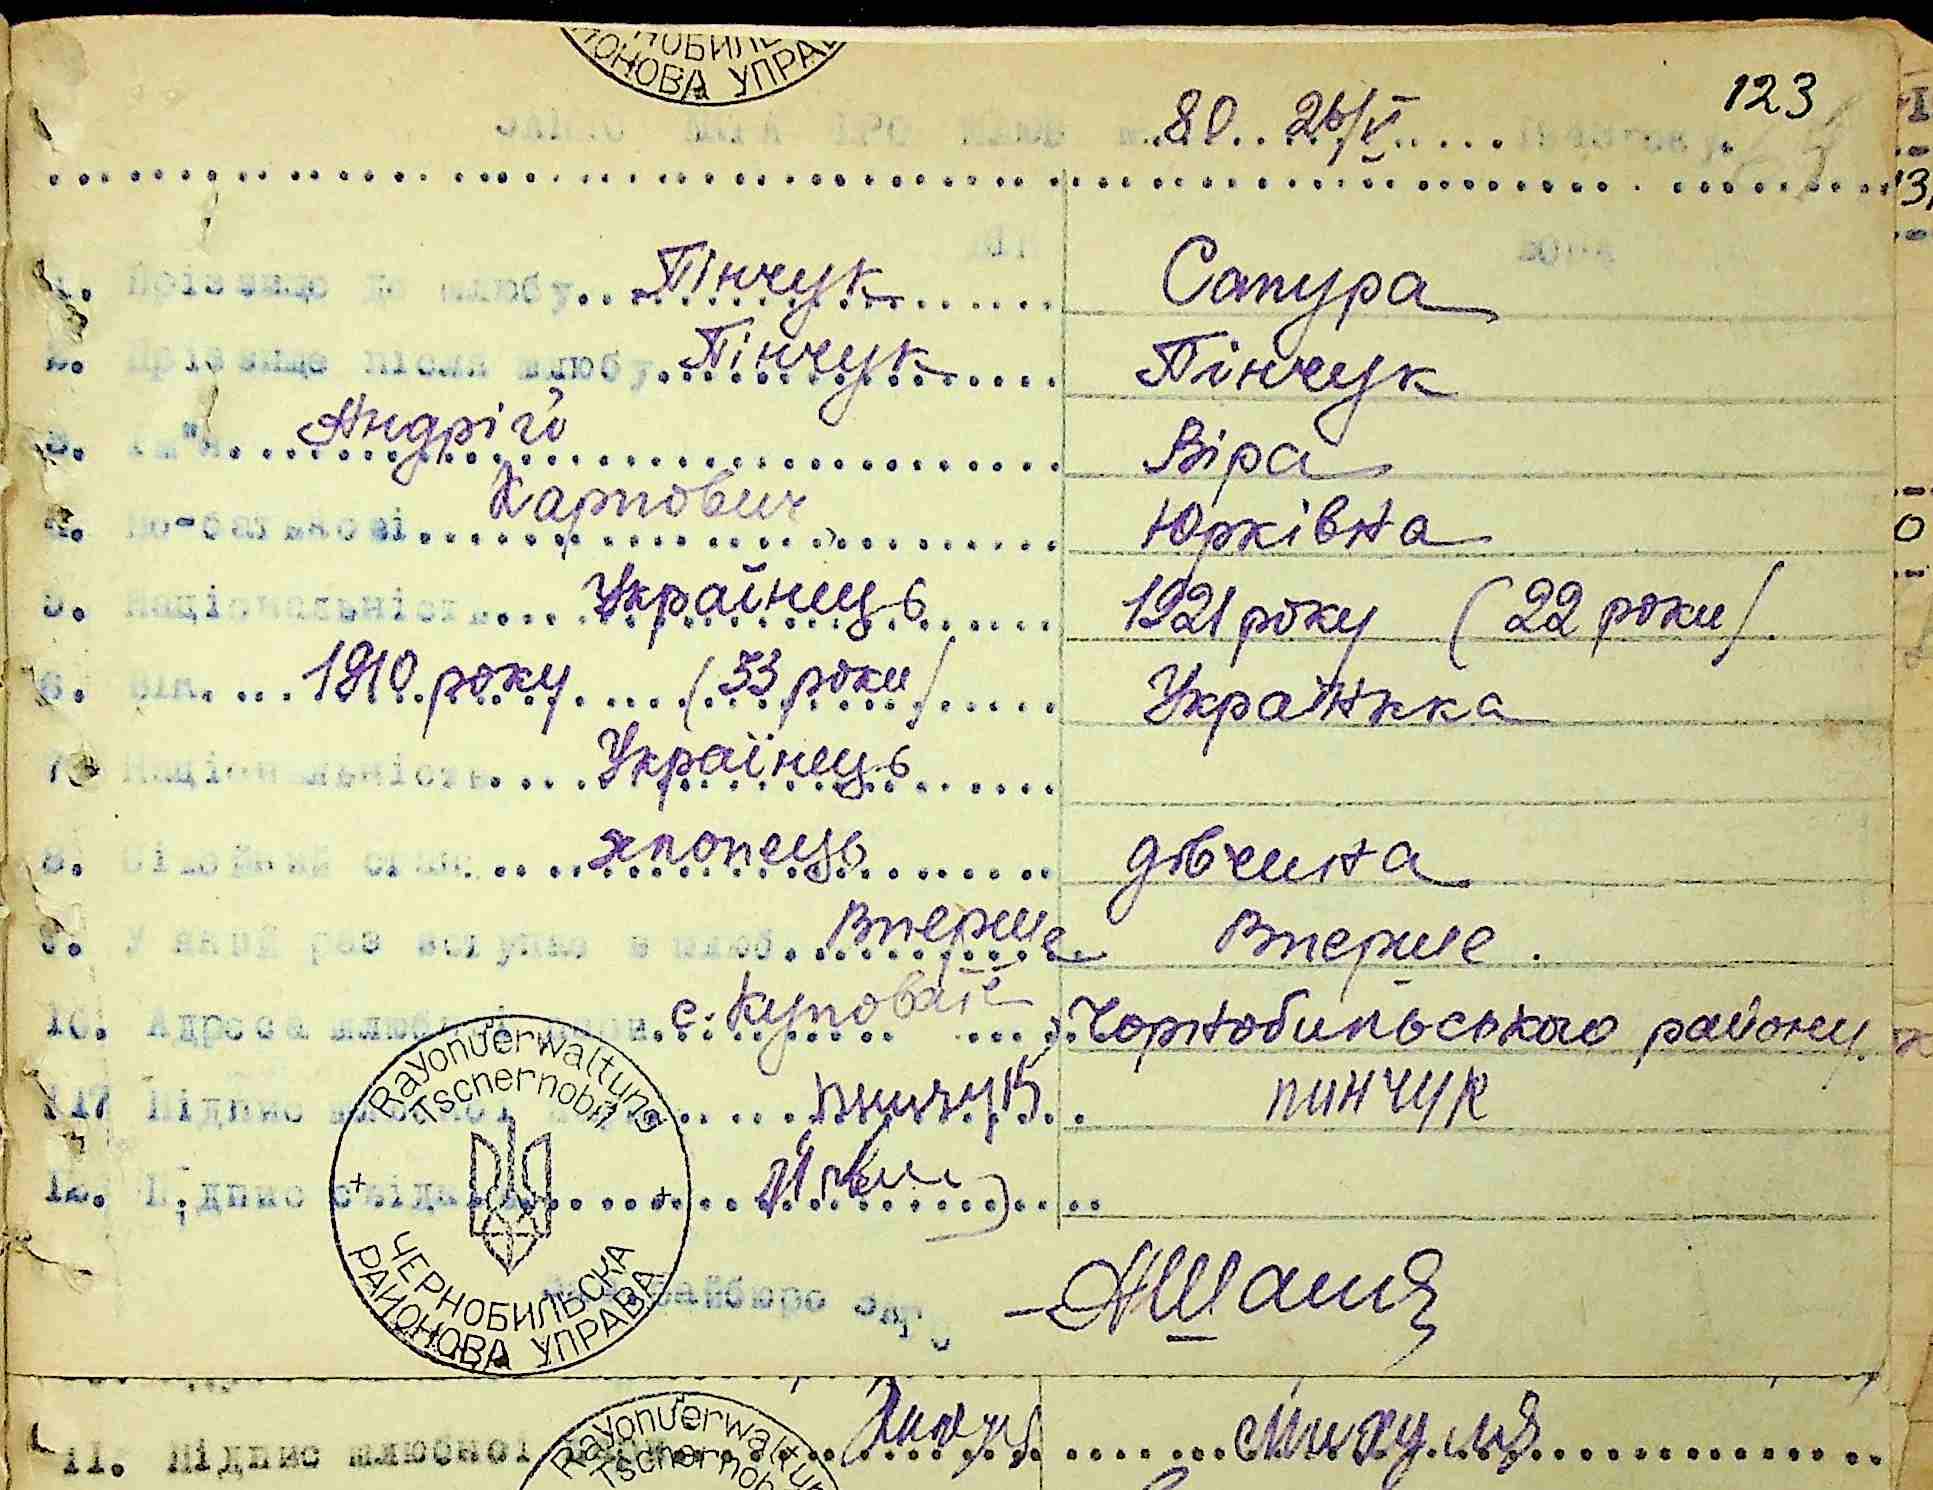 НОБИЛЬ
ЙОНОВА УПРАВ
123
80. 26/V
1. Прізвище до шлюбу Пінчук Сапура
2. Прізвище після шлюбу Пінчук Пінчук
3. Ім"я Андрій Віра
4. По-батькові Карпович Юрківна
5. Національність Українець 1921 року (22 роки)
6. Вік 1910 року (33 роки) Українка
7. Національність Українець
8. стан хлопець дівчина
9. У який раз вступає в шлюб Вперше Вперше.
10. Адреса шлюбної пари с. Куповате Чорнобильського району
11. Підпис шлюбної пари Пинчук ПИНЧУК
12. Підпис свідків
Rayonverwaltung
Tschernobil
ЧЕРНОБИЛЬСКА
РАЙОНОВА УПРАВА
райбюро
11. Підпис шлюбної пари Микуля
Rayonverwaltun
Tschernob